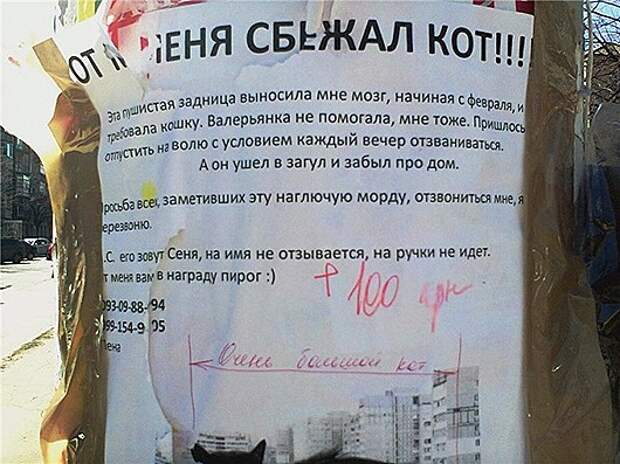 ОТ МЕНЯ СБЕЖАЛ КОТ!!!!
Эта пушистая задница выносила мне мозг, начиная с февраля, и
требовала кошку. Валерьянка не помогала, мне тоже. Пришлось
отпустить на волю с условием каждый вечер отзваниваться.
А он ушел в загул и забыл про дом.
Просьба всех, заметивших эту наглючую морду, отзвониться мне, я
перезвоню.
.С. его зовут Сеня, на имя не отзывается, на ручки не идет.
т меня вам в награду пирог :)
+ 100 грн
093-09-88- 94
099-154-9 05
Лена
Очень большой кот